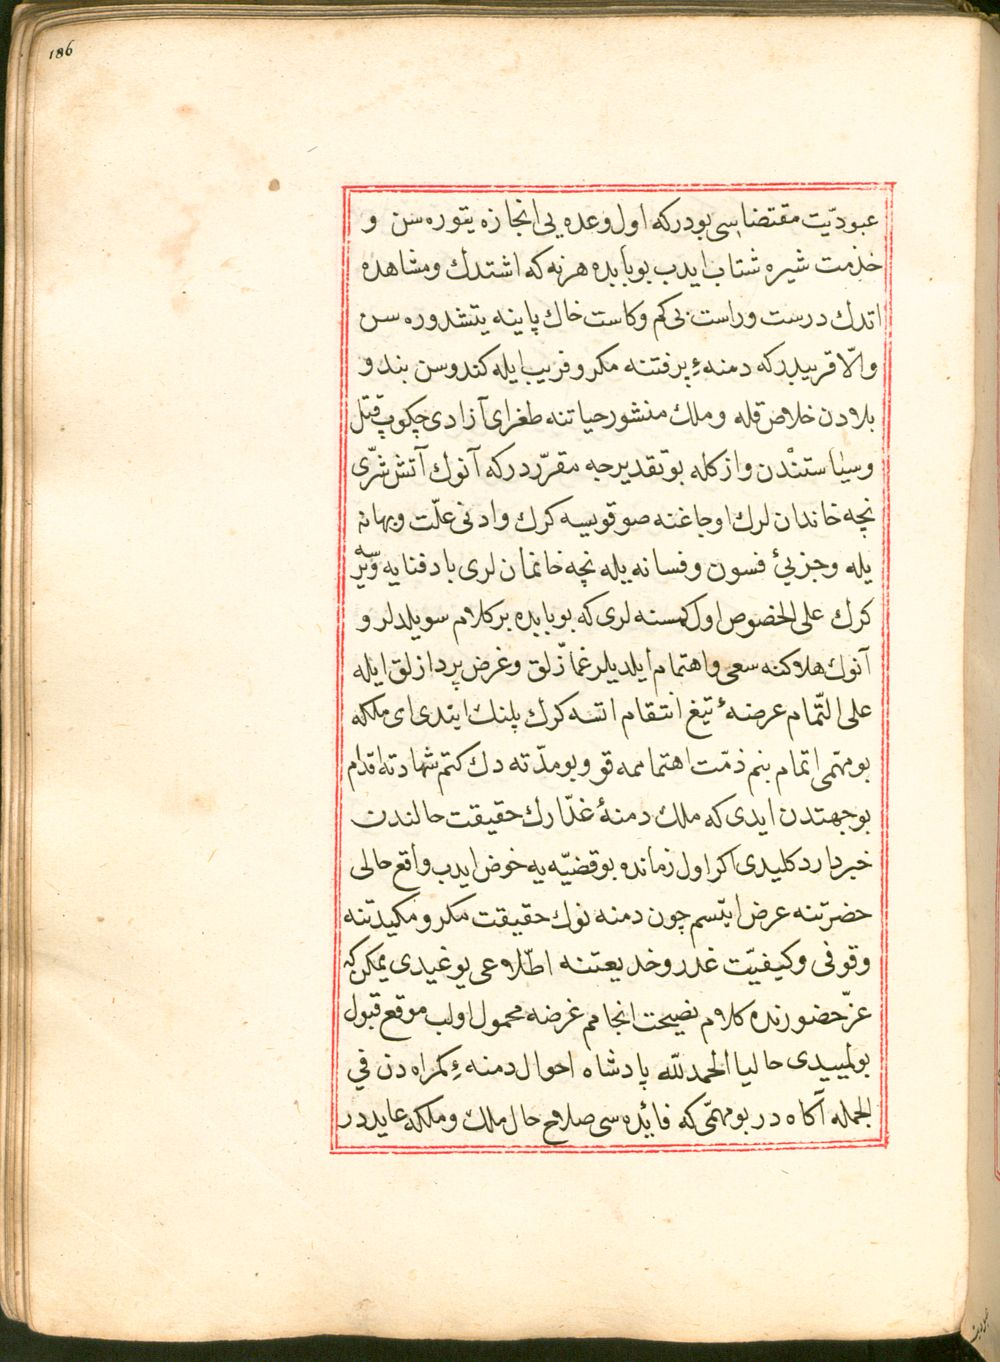 186
عبودیّت مقتضاسی بودر که اول وعده یی انجازه یتوره سن و
خذمت شیره شتاب ایدب بو بابده هر نه که اشتدك ومشاهده
اتدك درست وراست بی کم وکاست خاك پاینه یتشدوره سن
والّا قریبدر که دمنهٔ پرفتنه مکر وفریب ایله کندوسن بند و
بلادن خلاص قله وملك منشور حیاتنه طغرای آزادی چکوب قتل
وسیاستندن وازکله بو تقدیرجه مقرّردر که آنوك آتش شرّی
نچه خاندان لرك اوجاغنه صو قویسه کرك وادنی علّت وبهانه
یله وجزئی فسون وفسانه یله نچه خانمان لری باد فنایه ویرسه
کرك علی الخصوص اول کمسنه لری که بو بابده بر کلام سویلدلر و
آنوك هلاکنه سعی واهتمام ایلدیلر غمازّلق وغرض پردازلق ایله
علی التّمام عرضهٔ تیغ انتقام اتسه کرك پلنك ایتدی ای ملکه
بو مهمّی اتمام بنم ذمّت اهتماممه قو و بو مدّته دك کتم شهادته اقدام
بو جهتدن ایدی که ملك دمنهٔ غدّارك حقیقت حالندن
خبردار دکلیدی اکر اول زمانده بو قضیّه یه خوض ایدب واقع حالی
حضرتنه عرض ایتسم چون دمنه نوك حقیقت مکر ومکیدتنه
وقوفی وکیفیّت غدر وخدیعتنه اطّلاعی یوغیدی ممکن که
عزّ حضورنده کلام نصیحت انجامم غرضه محمول اولب موقع قبول
بولمییدی حالیا الحمدلله پادشاه احوال دمنهٔ کمراه دن في
الجمله آکاه در بو مهمّی که فائده سی صلاح حال ملك وملکه عایددر